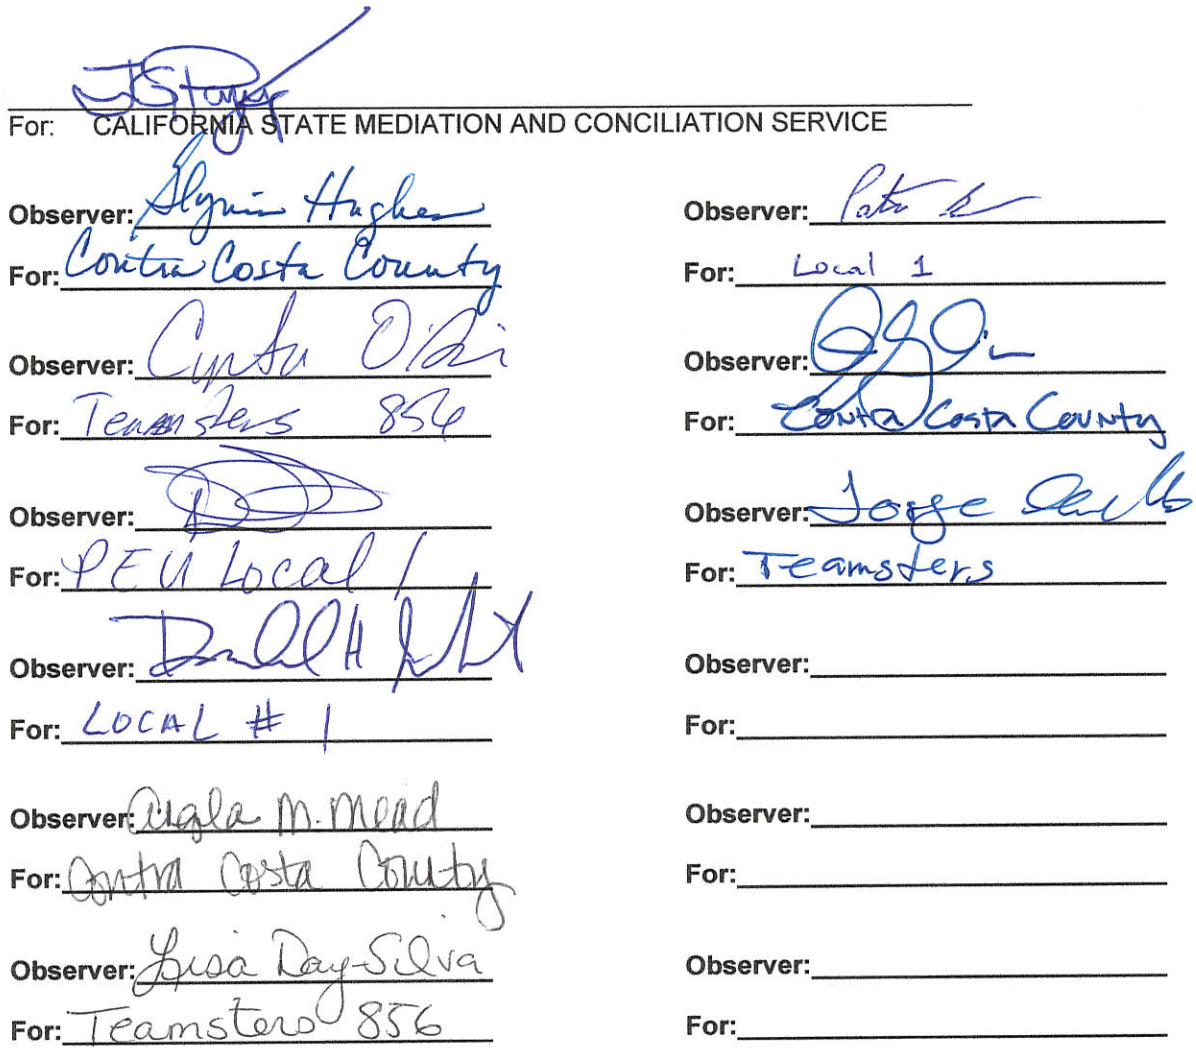 For: CALIFORNIA STATE MEDIATION AND CONCILIATION SERVICE
Observer: Hughes
For: Contra Costa County
Observer:
For: Teamsters 856
Observer:
For: PEU Local 1
Observer: H
For: LOCAL # 1
Observer: M. Mead
For: Contra Costa County
Observer: Lisa Day-Silva
For: Teamsters 856
Observer:
For: Local 1
Observer:
For: Contra Costa County
Observer: Jorge
For: Teamsters
Observer:
For:
Observer:
For:
Observer:
For: